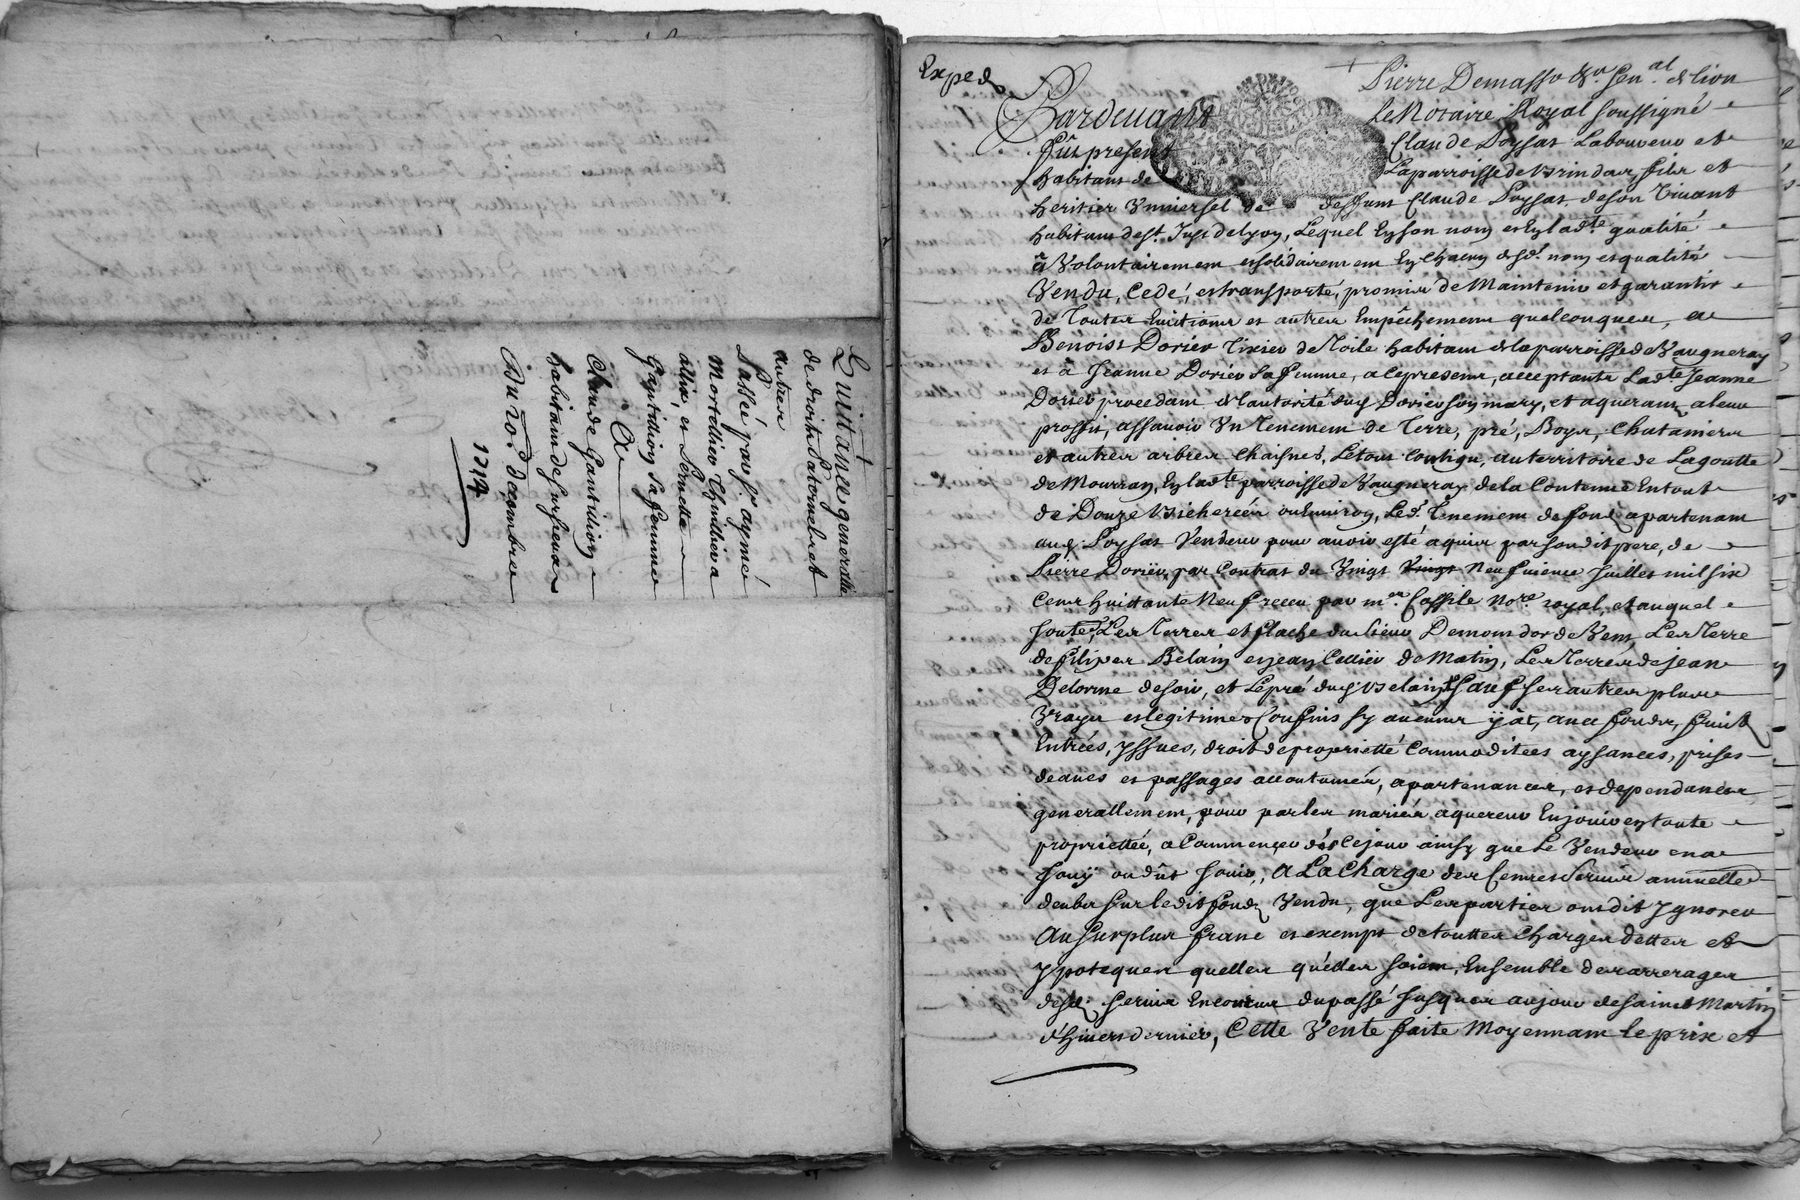 Quittances generalle
de droits Paternels et
autres
Passé par sr. aymé
Mortellier Chulliers a
allix, et Pernette
Gantillion sa femme
A
Claude Gantillion
habitans de
Du 20.d decembre
1717
Exped
Pierre Demasso &r. Gen.al de Lion
Pardevant Le Notaire Royal soussigné
fût present Claude Poyssat Laboureur et
habitant de La parroisse de Brindas fils et
heritier Universel de deffunt Claude Poyssat de son Vivant
habitant de st. Just de Lyon, Lequel En son nom et En lad.te qualité
à Volontairement et solidairement En chacun desd. nom et qualité
Vendu, Cedé, et transporté, promis de Maintenir et garantir
de Toutes Evictions et autres Empêchements quelconques, a
Benoist Dorier Tixier de Toile habitant de la parroisse de Vaugneray
et à Jeanne Dorier sa femme, a ce presents, acceptants Lad.te Jeanne
Dorier procedant de l'autorité dud Dorier son mary, et aquerans a leur
proffit, assavoir Un Tenement de Terre, pré, Boys, Chataniers
et autres arbres Chaisnes, Le tout Contigu, au territoire de Lagoutte
de Mourran, En lad.te parroisse de Vaugneray de la Contenue En tout
de Douze Bicherées ou Environ, Led. Tenement de fond apartenant
aud. Poyssat Vendeur pour avoir esté aquis par son dit pere, de
Pierre Dorier, par Contrat du Vingt Vingt Neufvieme Juillet mil six
Cent huictante Neuf receu par m.re Cassile No.re royal, et auquel
Joute, Les Terres et flache du sieur Demont dor de Vent, Les Terre
de filiper Belain et Jean Cellier de Matin, Les Terres de Jean
Delorme de soir, et Le pré dud. Belain, Sauf ses autres plus
Vrays et Legitimes Confins sy aucuns y àt, avec fonds, fruits
Entrées, yssues, droit de proprietté Commoditees aysances, prises
deaues et passages accoutumés, apartenances, et dependances
generallement, pour par Les mariés aquereurs En jouir en toute
propriettée, a Commencer dés Ce jour ainsy que Le Vendeur en a
Jouÿ ou dût Jouir, A La Charge des Cens et Servis annuelle
deubs sur le dit fond Vendu, que Les parties ont dit Ygnorer
Au surplus franc et exempt de touttes Charges dettes et
ypoteques quelles qu'elles soient, Ensemble des arrerages
desd. servis Encourus du passé jusques au jour de saint Martin
d'hivers dernier, Cette Vente faite Moyennant le prix et